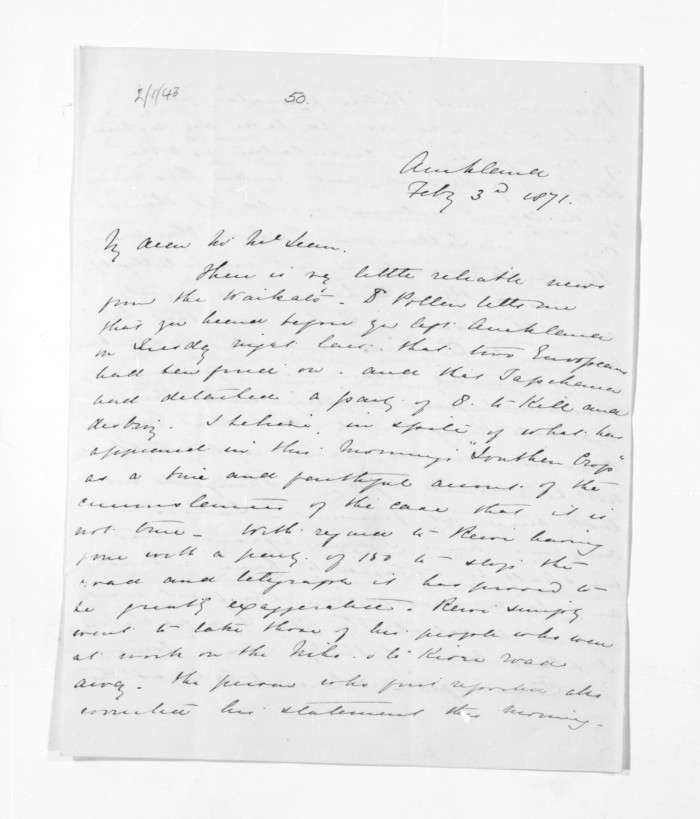 2/1/43
50.
Auckland
Feby 3rd 1871.
My dear Mr McLean.
There is vy little reliable news
from the Waikato - Dr Pollen tells me
that you heard before you left Auckland
on Tuesday night last that two Europeans
had been fired on. and that Tapihana
had detached a party of 8. to Kill and
destroy. I believe in spite of what has
appeared in this Morning's "Southern Cross"
as a true and faithful account of the
circumstances of the case that it is
not true - With regard to Rewi having
gone with a party of 150 to stop the
road and telegraph it has proved to
be greatly exaggerated. Rewi simply
went to take those of his people who were
at work on the Niho o te Kiore road
away. The person who first reported this
corrected his statement this morning -